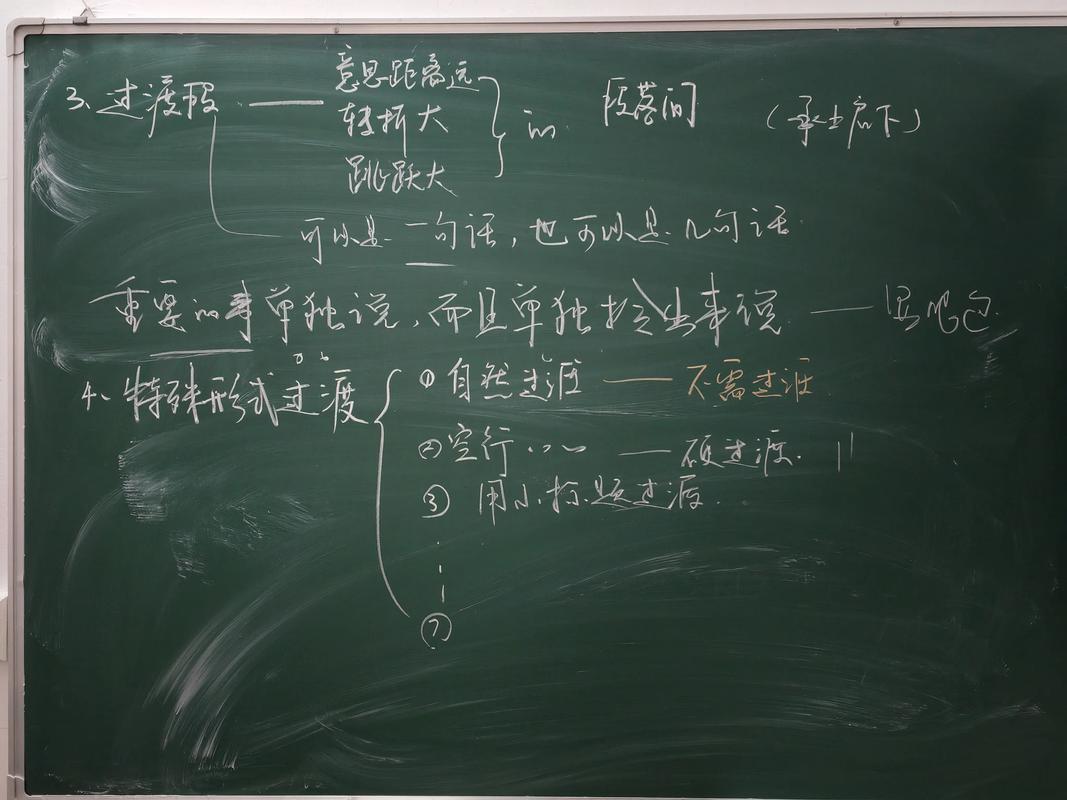 3、过渡段 —— 意思距离远
转折大
跳跃大
} 的 段落间 (承上启下)
可以是一句话，也可以是几句话
重要的事单独说，而且单独拎出来说 ——
4、特殊形式过渡
① 自然过渡 —— 不需过渡
② 空行 —— 硬过渡.
③ 用小标题过渡.
⑦